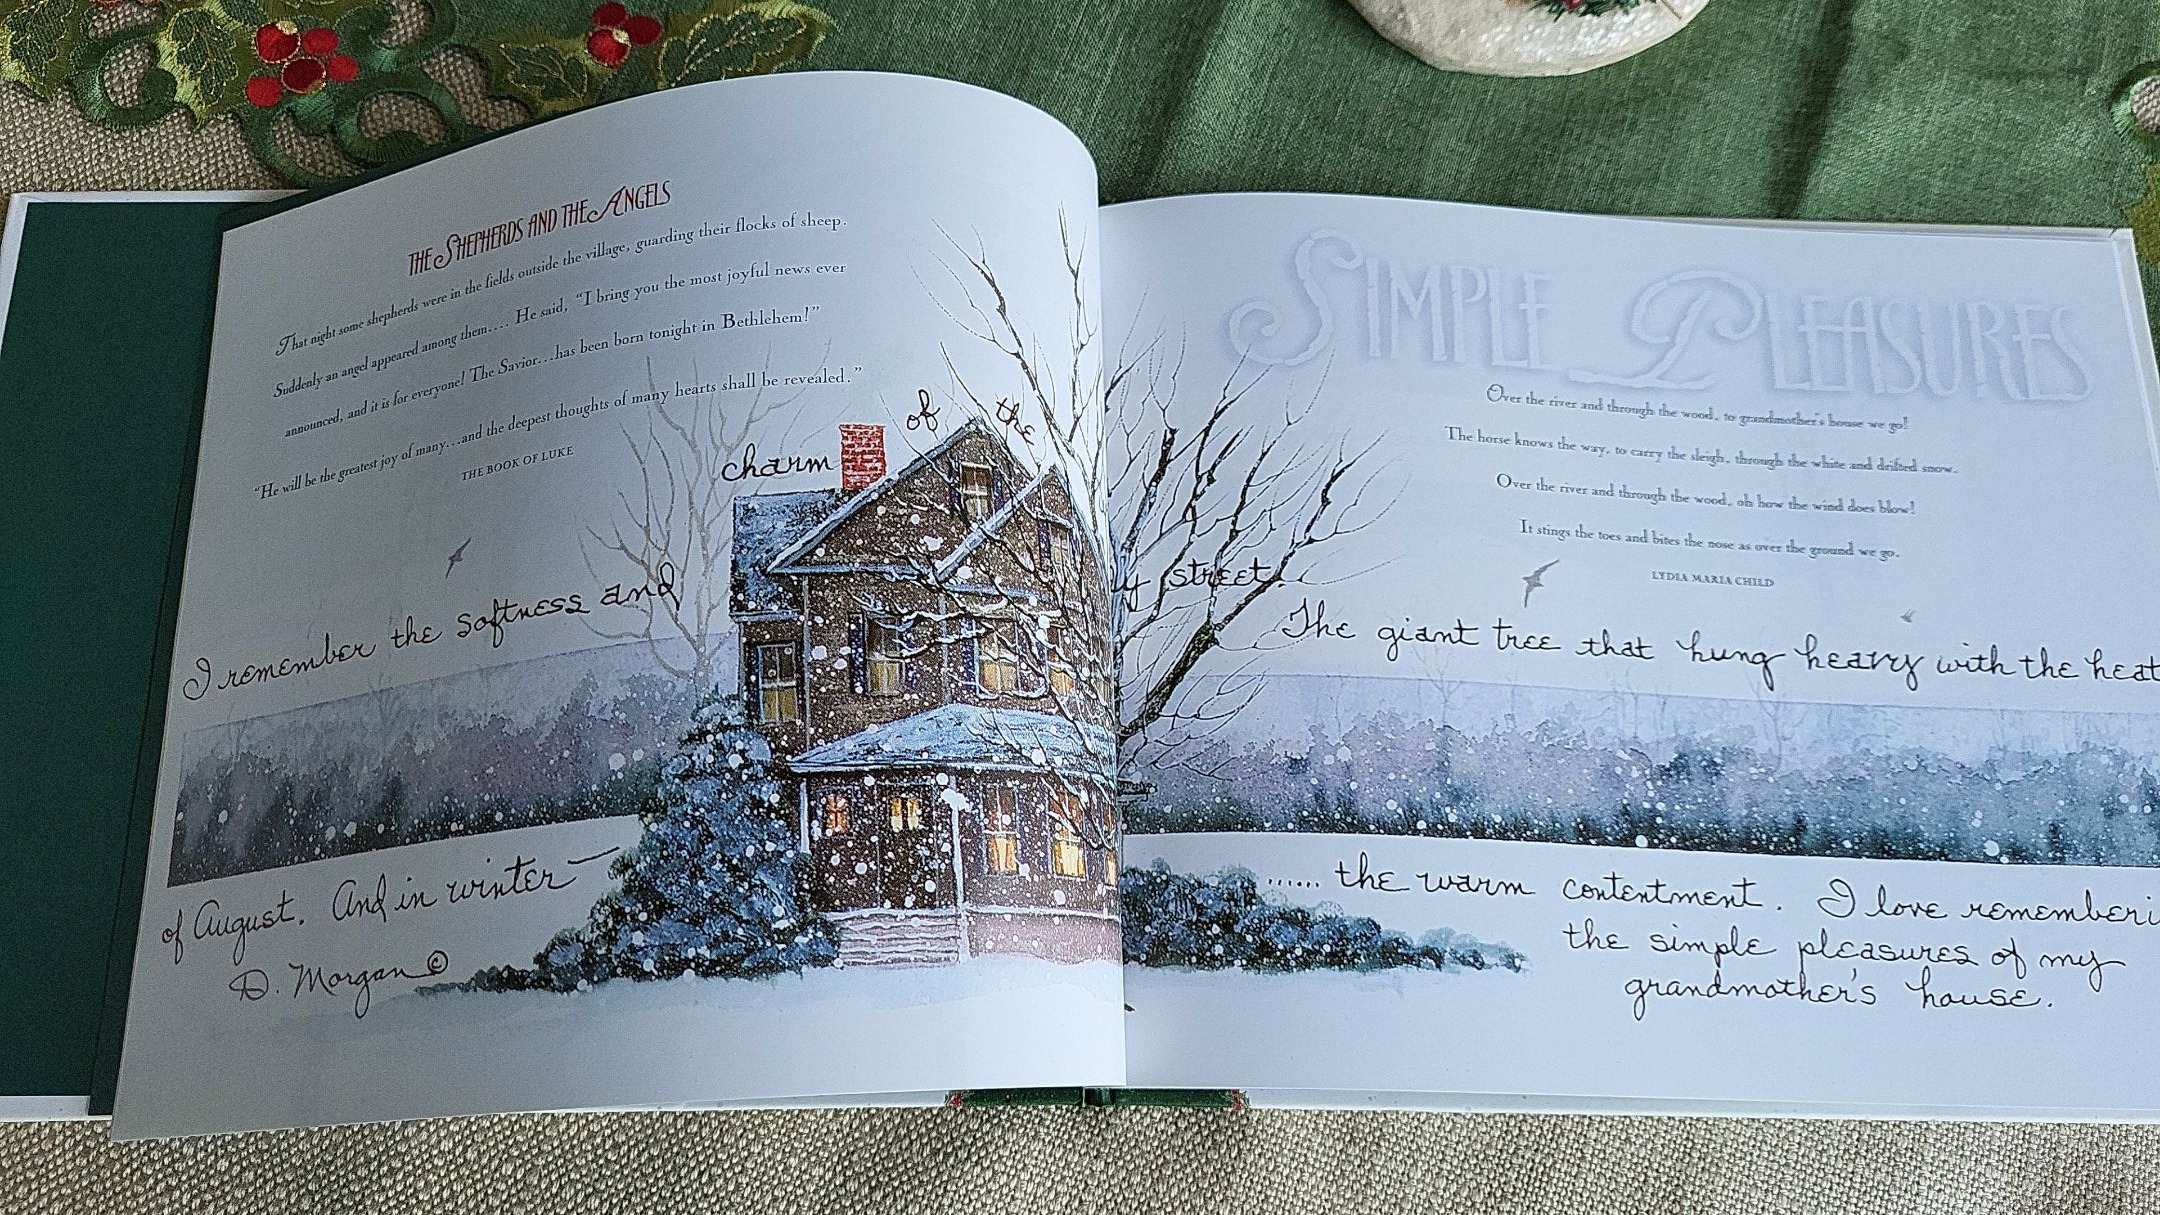 THE SHEPHERDS AND THE ANGELS
That night some shepherds were in the fields outside the village, guarding their flocks of sheep.
Suddenly an angel appeared among them.... He said, “I bring you the most joyful news ever
announced, and it is for everyone! The Savior...has been born tonight in Bethlehem!”
“He will be the greatest joy of many...and the deepest thoughts of many hearts shall be revealed.”
THE BOOK OF LUKE
I remember the softness and charm of the
of August. And in winter —
D. Morgan ©
SIMPLE PLEASURES
Over the river and through the wood, to grandmother's house we go!
The horse knows the way, to carry the sleigh, through the white and drifted snow.
Over the river and through the wood, oh how the wind does blow!
It stings the toes and bites the nose as over the ground we go.
LYDIA MARIA CHILD
street.
The giant tree that hung heavy with the heat
...... the warm contentment. I love
the simple pleasures of my
grandmother's house.